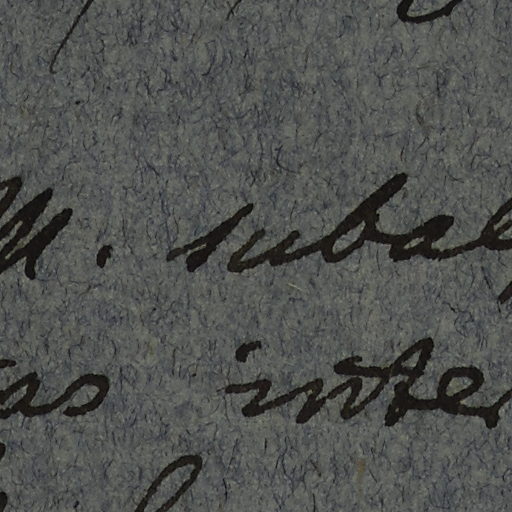 M. subal
as inter